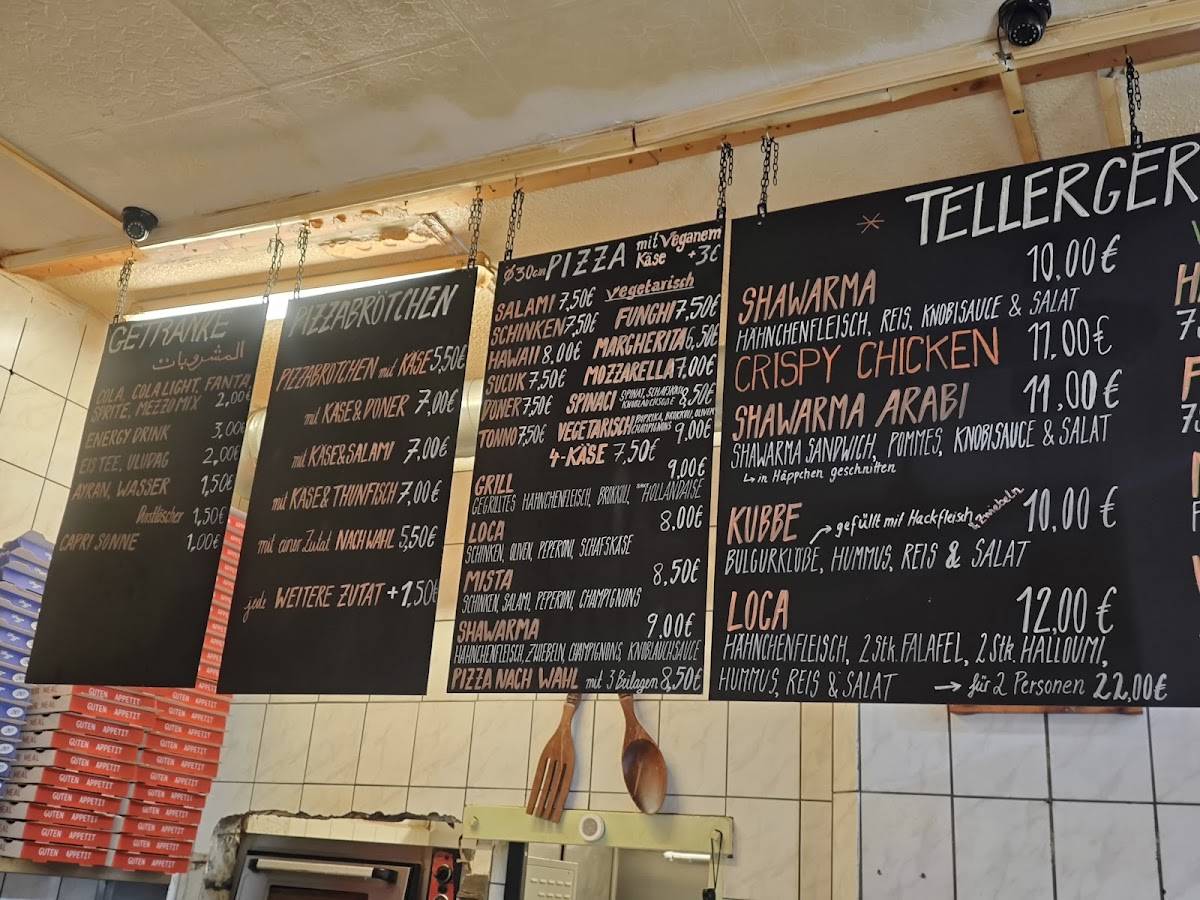 GETRÄNKE
المشروبات
COLA, COLA LIGHT, FANTA,
SPRITE, MEZZO MIX 2,00€
ENERGY DRINK 3,00€
EISTEE, ULUDAG 2,00€
AYRAN, WASSER 1,50€
Durstlöscher 1,50€
CAPRI SONNE 1,00€
PIZZABRÖTCHEN
PIZZABRÖTCHEN mit KÄSE 5,50€
mit KÄSE & DÖNER 7,00€
mit KÄSE & SALAMI 7,00€
mit KÄSE & THUNFISCH 7,00€
mit einer Zutat NACH WAHL 5,50€
jede WEITERE ZUTAT +1,50€
Ø30cm PIZZA mit Veganem
Käse +3€
SALAMI 7,50€
SCHINKEN 7,50€
HAWAII 8,00€
SUCUK 7,50€
DÖNER 7,50€
TONNO 7,50€
Vegetarisch
FUNGHI 7,50€
MARGHERITA 6,50€
MOZZARELLA 7,00€
SPINACI SPINAT, SCHAFSKÄSE
KNOBLAUCHSOßE 8,50€
VEGETARISCH PAPRIKA, BROKKOLI, OLIVEN
CHAMPIGNONS 9,00€
4-KÄSE 7,50€
GRILL 9,00€
GEGRILLTES HÄHNCHENFLEISCH, BROKKOLI, HOLLANDAISE
LOCA 8,00€
SCHINKEN, OLIVEN, PEPERONI, SCHAFSKÄSE
MISTA 8,50€
SCHINKEN, SALAMI, PEPERONI, CHAMPIGNONS
SHAWARMA 9,00€
HÄHNCHENFLEISCH, ZWIEBELN, CHAMPIGNONS, KNOBLAUCHSAUCE
PIZZA NACH WAHL mit 3 Beilagen 8,50€
TELLERGER
SHAWARMA 10,00€
HÄHNCHENFLEISCH, REIS, KNOBISAUCE & SALAT
CRISPY CHICKEN 11,00€
SHAWARMA ARABI 11,00€
SHAWARMA SANDWICH, POMMES, KNOBISAUCE & SALAT
↳ in Häppchen geschnitten
KUBBE → gefüllt mit Hackfleisch & Zwiebeln 10,00€
BULGURKLÖßE, HUMMUS, REIS & SALAT
LOCA 12,00€
HÄHNCHENFLEISCH, 2 Stk. FALAFEL, 2 Stk. HALLOUMI,
HUMMUS, REIS & SALAT → für 2 Personen 22,00€
GUTEN APPETIT
GUTEN APPETIT
GUTEN APPETIT
GUTEN APPETIT
GUTEN APPETIT
GUTEN APPETIT
GUTEN APPETIT
GUTEN APPETIT